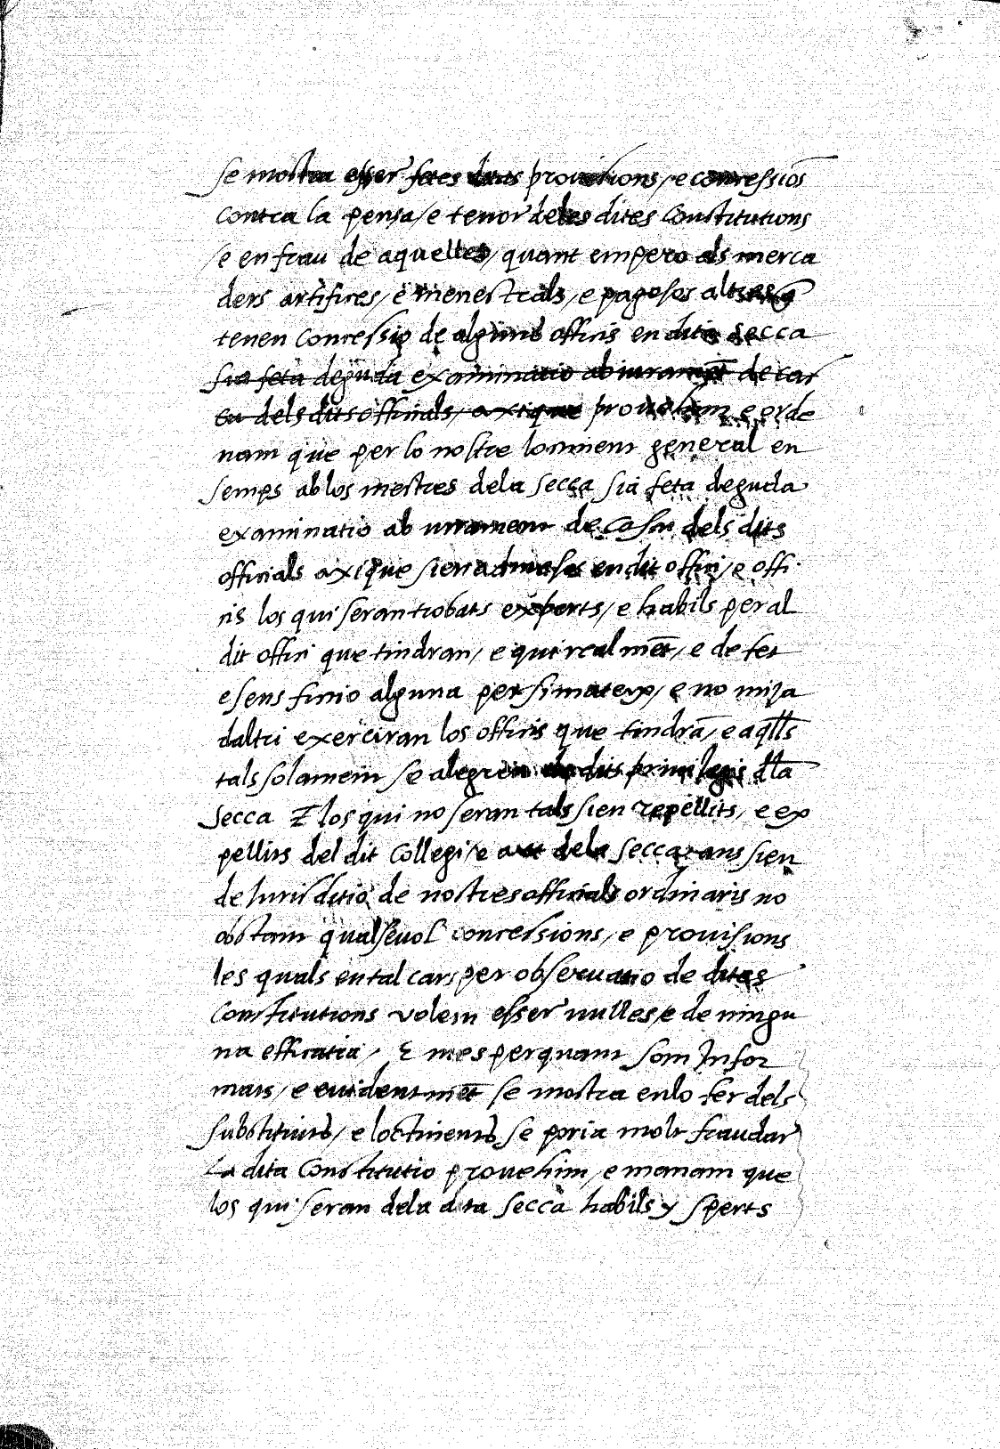 se mostra esser fetes dites prouisions, e concessiōs
contra la pensa, e tenor deles dites Constitutions
, e en frau de aquelles, quant empero als merca
ders artifices, e menestrals, e pagesos altres q̄
tenen concessio de alguns officis en dita secca
sia feta deguda examinatio ab iuramēt de cas
cu dels dits officials, axi que prouehim e orde
nam que per lo nostre loctinent general en
semps ab los mestres dela secca sia feta deguda
examinatio ab iurament de cascu dels dits
officials axi que sien admesos en dit offici, e offi
cis los qui seran trobats experts, e habils per al
dit offici que tindran, e qui realmēt, e de fet
e sens fictio alguna per si mateix, e no mija
daltri exerciran los officis que tindrā, e aq̄lls
tals solament se alegren de dits priuilegis dla
secca E los qui no seran tals sien repellits, e ex
pellits del dit collegi, e art dela secca, ans sien
de Iurisditio de nostres officials ordinaris no
obstant qualseuol concessions, e prouisions
les quals en tal cars per obseruatio de dites
Constitutions volem esser nulles, e de ningu
na efficatia, E mes per quant som Infor
mats, e euidentmēt se mostra en lo fer dels
substituits, e loctinents se poria molt fraudar
La dita Constitutio prouehim, e manam que
los qui seran dela dita secca habils y sperts